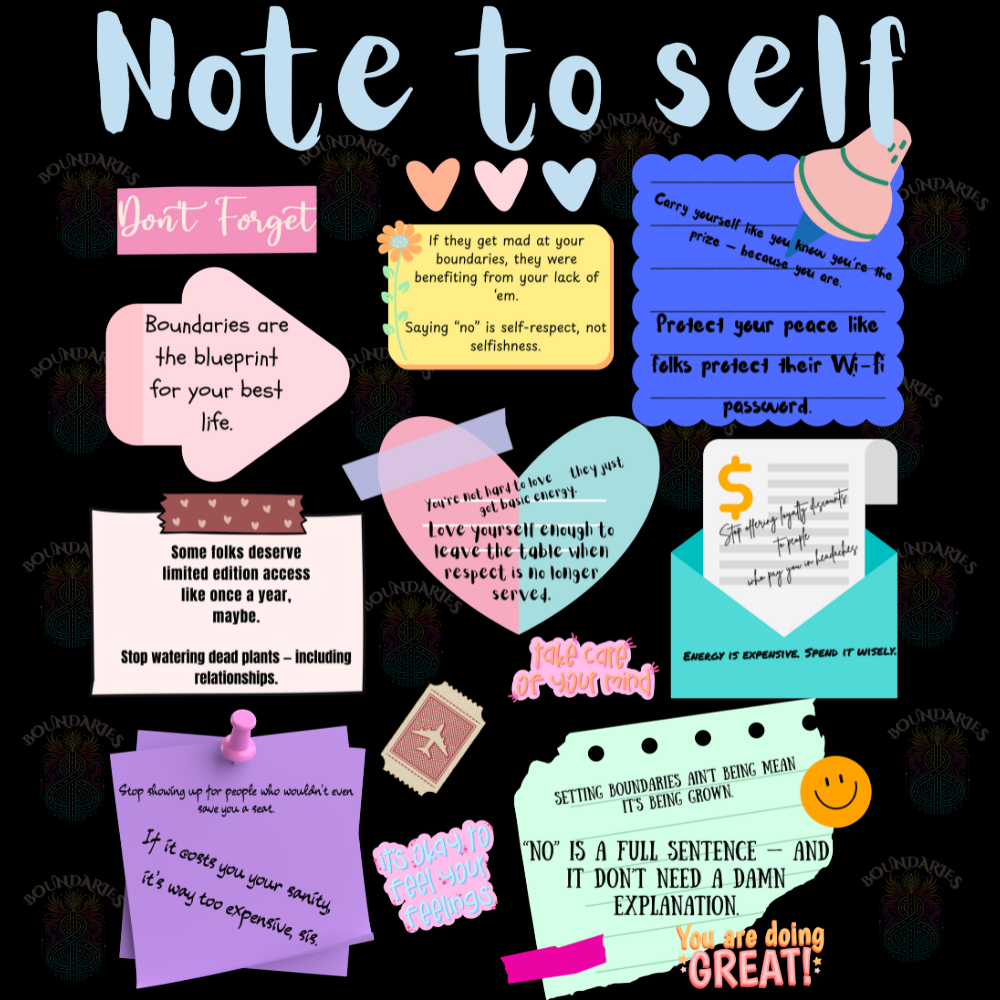 Note to self
Don't Forget
If they get mad at your
boundaries, they were
benefiting from your lack of
'em.
Saying "no" is self-respect, not
selfishness.
Carry yourself like you know you're the
prize – because you are.
Protect your peace like
folks protect their Wi-fi
password.
Boundaries are
the blueprint
for your best
life.
You're not hard to love they just
got basic energy.
Love yourself enough to
leave the table when
respect is no longer
served.
$
Stop offering loyalty discounts
to people
who pay you in headaches
Energy is expensive. Spend it wisely.
Some folks deserve
limited edition access
like once a year,
maybe.
Stop watering dead plants – including
relationships.
take care
of your mind
Stop showing up for people who wouldn't even
save you a seat.
If it costs you your sanity,
it's way too expensive, sis.
it's okay to
feel your
feelings
SETTING BOUNDARIES AIN'T BEING MEAN
IT'S BEING GROWN.
"NO" IS A FULL SENTENCE — AND
IT DON'T NEED A DAMN
EXPLANATION.
You are doing
GREAT!
BOUNDARIES
BOUNDARIES
BOUNDARIES
BOUNDARIES
BOUNDARIES
BOUNDARIES
BOUNDARIES
BOUNDARIES
BOUNDARIES